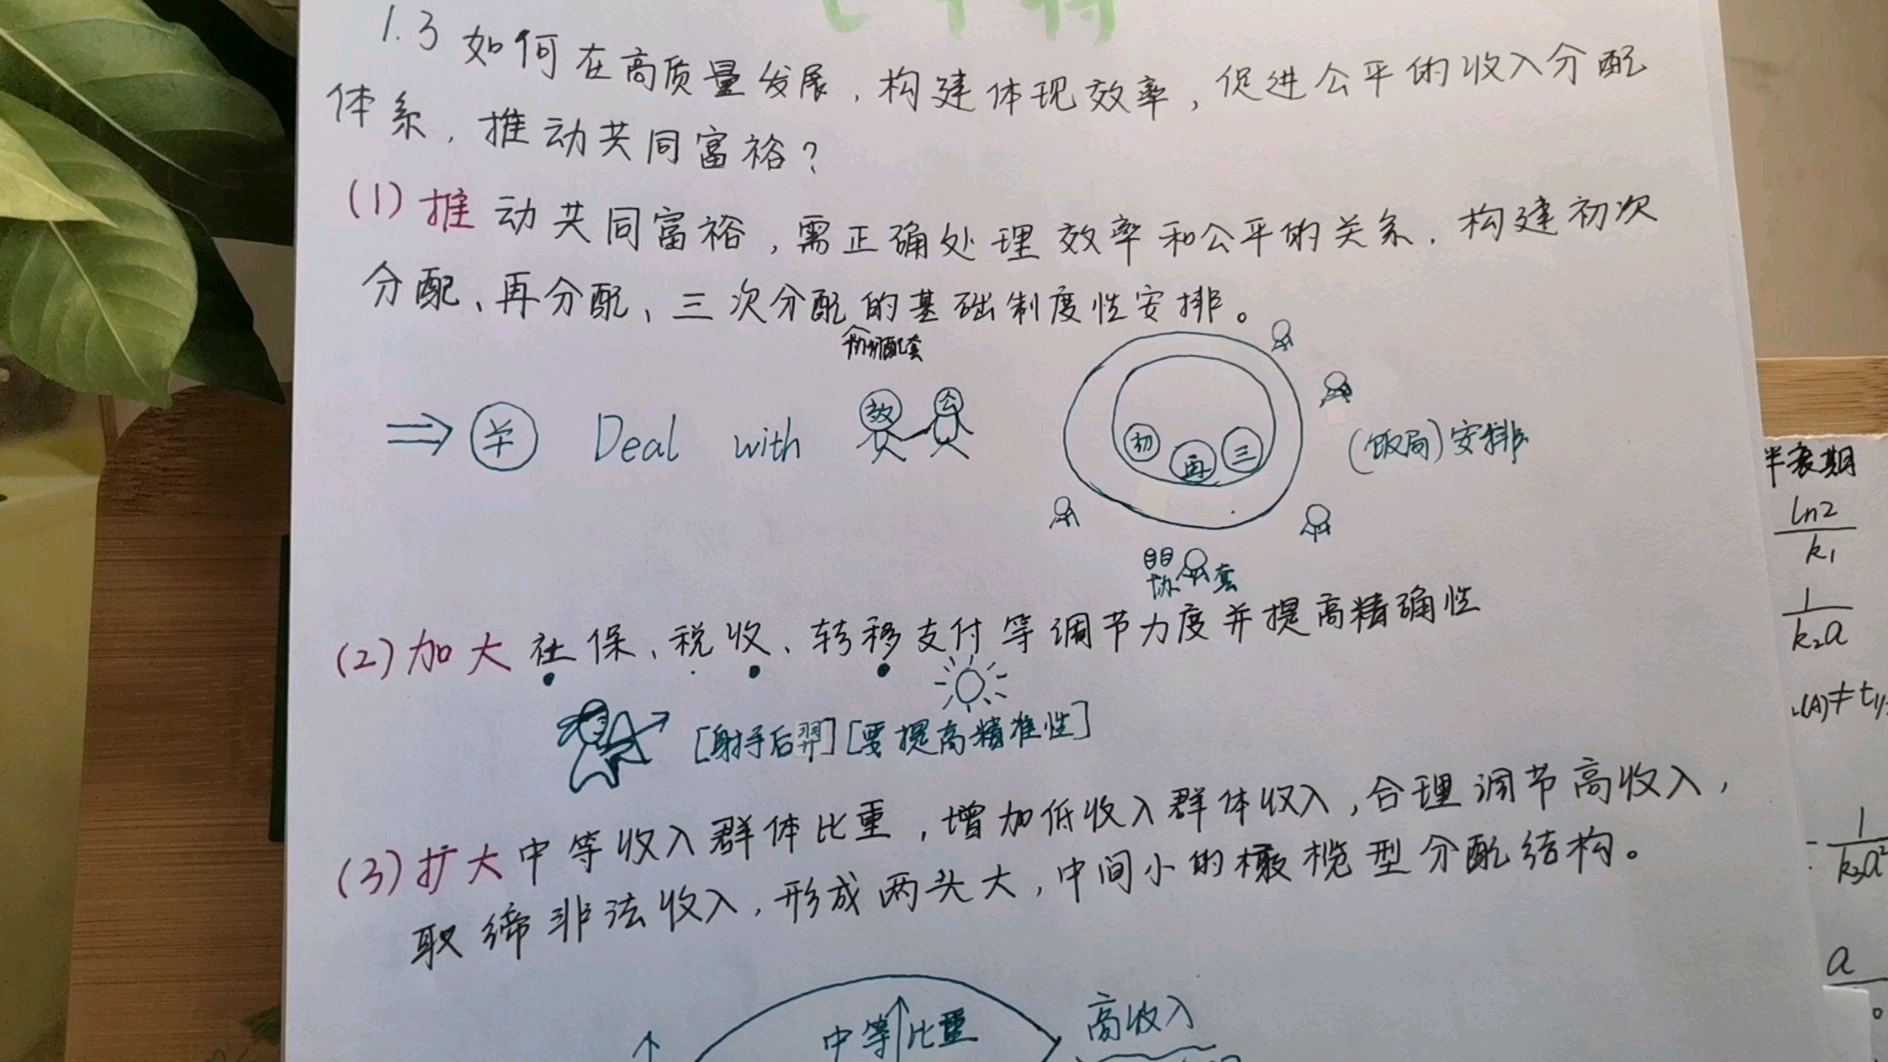 1.3 如何在高质量发展,构建体现效率,促进公平的收入分配
体系,推动共同富裕?
(1)推动共同富裕,需正确处理效率和公平的关系.构建初次
分配、再分配、三次分配的基础制度性安排。
⇒ Deal with 效 公
初 再 三
(饭局)安排
协 套
(2)加大社保、税收、转移支付等调节力度并提高精确性
[射手后羿][要提高精准性]
(3)扩大中等收入群体比重,增加低收入群体收入,合理调节高收入,
取缔非法收入,形成两头大,中间小的橄榄型分配结构。
中等比重
高收入
半衰期
ln2
k₁
1
k₂a
(A)≠t
1
k₃a²
a